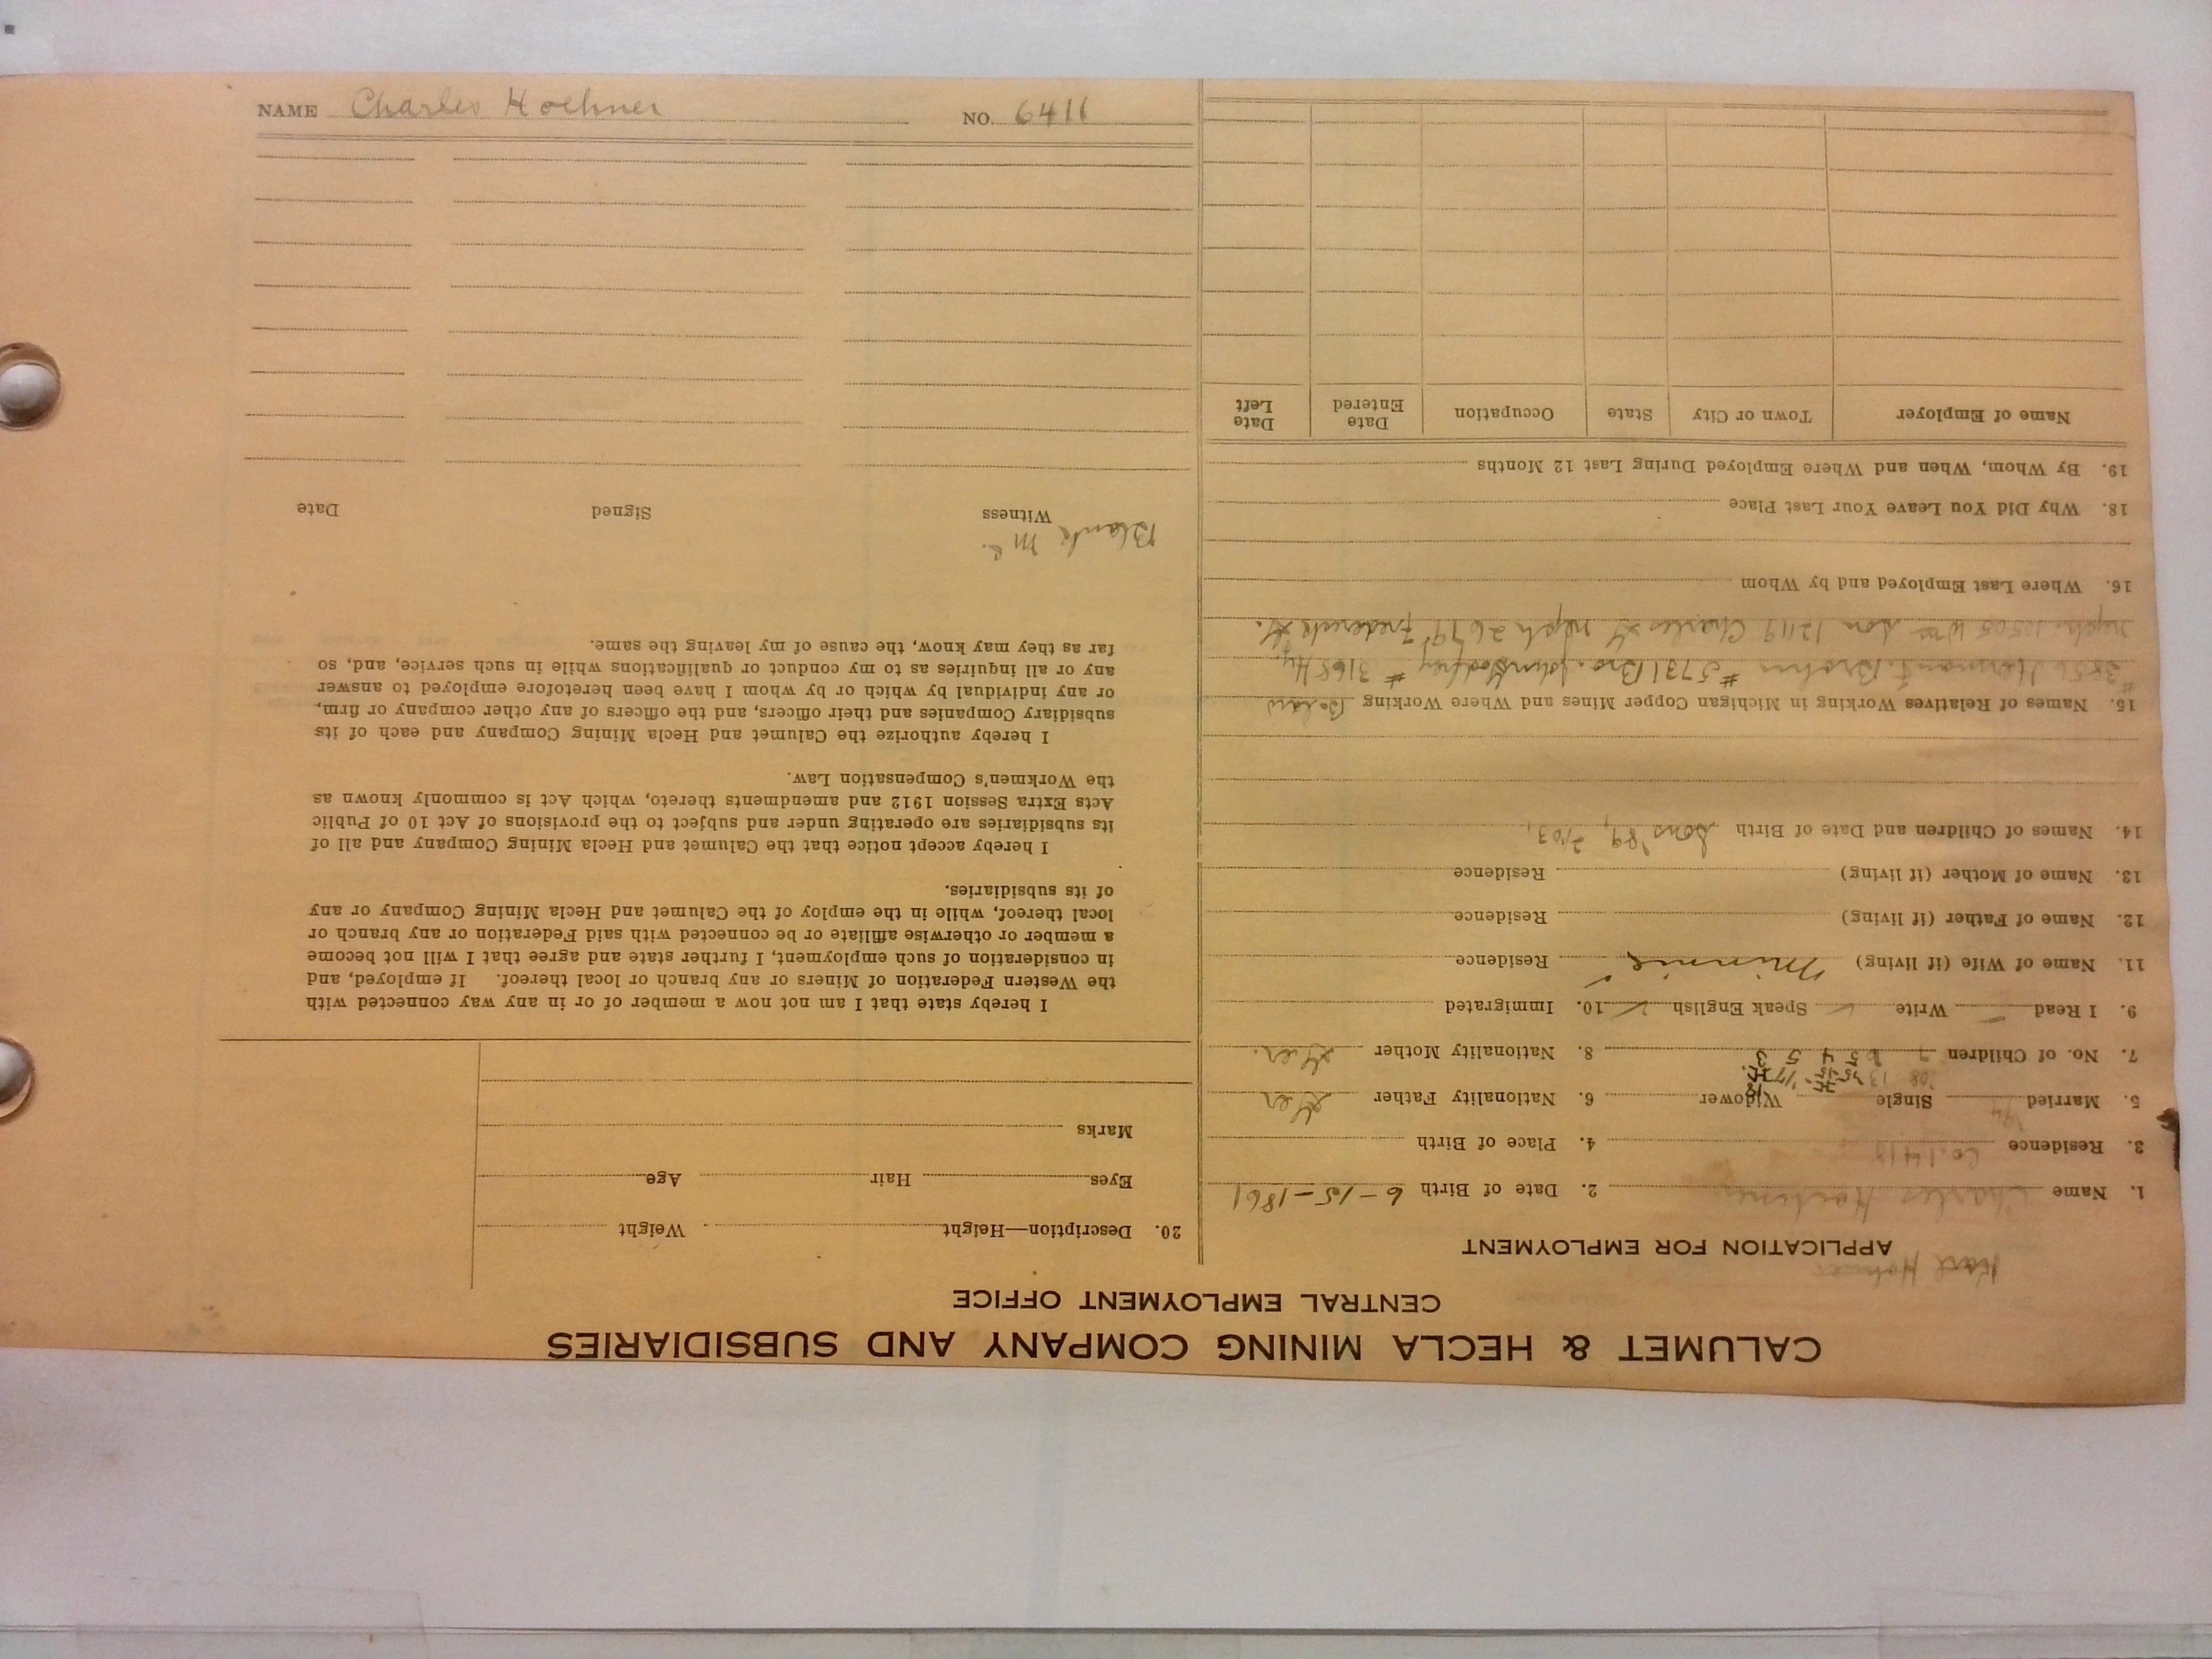 CALUMET & HECLA MINING COMPANY AND SUBSIDIARIES
CENTRAL EMPLOYMENT OFFICE
APPLICATION FOR EMPLOYMENT
1. Name Charles Hoehner 2. Date of Birth 6-15-1861
3. Residence 4. Place of Birth
5. Married Single Widower 6. Nationality Father Ger
7. No. of Children 8. Nationality Mother Ger.
9. I Read Write Speak English 10. Immigrated
11. Name of Wife (if living) Minnie Residence
12. Name of Father (if living) Residence
13. Name of Mother (if living) Residence
14. Names of Children and Date of Birth Sons '89,
15. Names of Relatives Working in Michigan Copper Mines and Where Working Below
# 3856 Herman F. # 5731 Bro. John # 3168
neph. 12505 Wm son 12119 Charles neph 2679 Frederick
16. Where Last Employed and by Whom
18. Why Did You Leave Your Last Place
19. By Whom, When and Where Employed During Last 12 Months
Name of Employer Town or City State Occupation Date Entered Date Left
20. Description—Height Weight
Eyes Hair Age
Marks
I hereby state that I am not now a member of or in any way connected with
the Western Federation of Miners or any branch or local thereof. If employed, and
in consideration of such employment, I further state and agree that I will not become
a member or otherwise affiliate or be connected with said Federation or any branch or
local thereof, while in the employ of the Calumet and Hecla Mining Company or any
of its subsidiaries.
I hereby accept notice that the Calumet and Hecla Mining Company and all of
its subsidiaries are operating under and subject to the provisions of Act 10 of Public
Acts Extra Session 1912 and amendments thereto, which Act is commonly known as
the Workmen's Compensation Law.
I hereby authorize the Calumet and Hecla Mining Company and each of its
subsidiary Companies and their officers, and the officers of any other company or firm,
or any individual by which or by whom I have been heretofore employed to answer
any or all inquiries as to my conduct or qualifications while in such service, and, so
far as they may know, the cause of my leaving the same.
Blank
Witness Signed Date
NAME Charles Hoehner NO. 6411